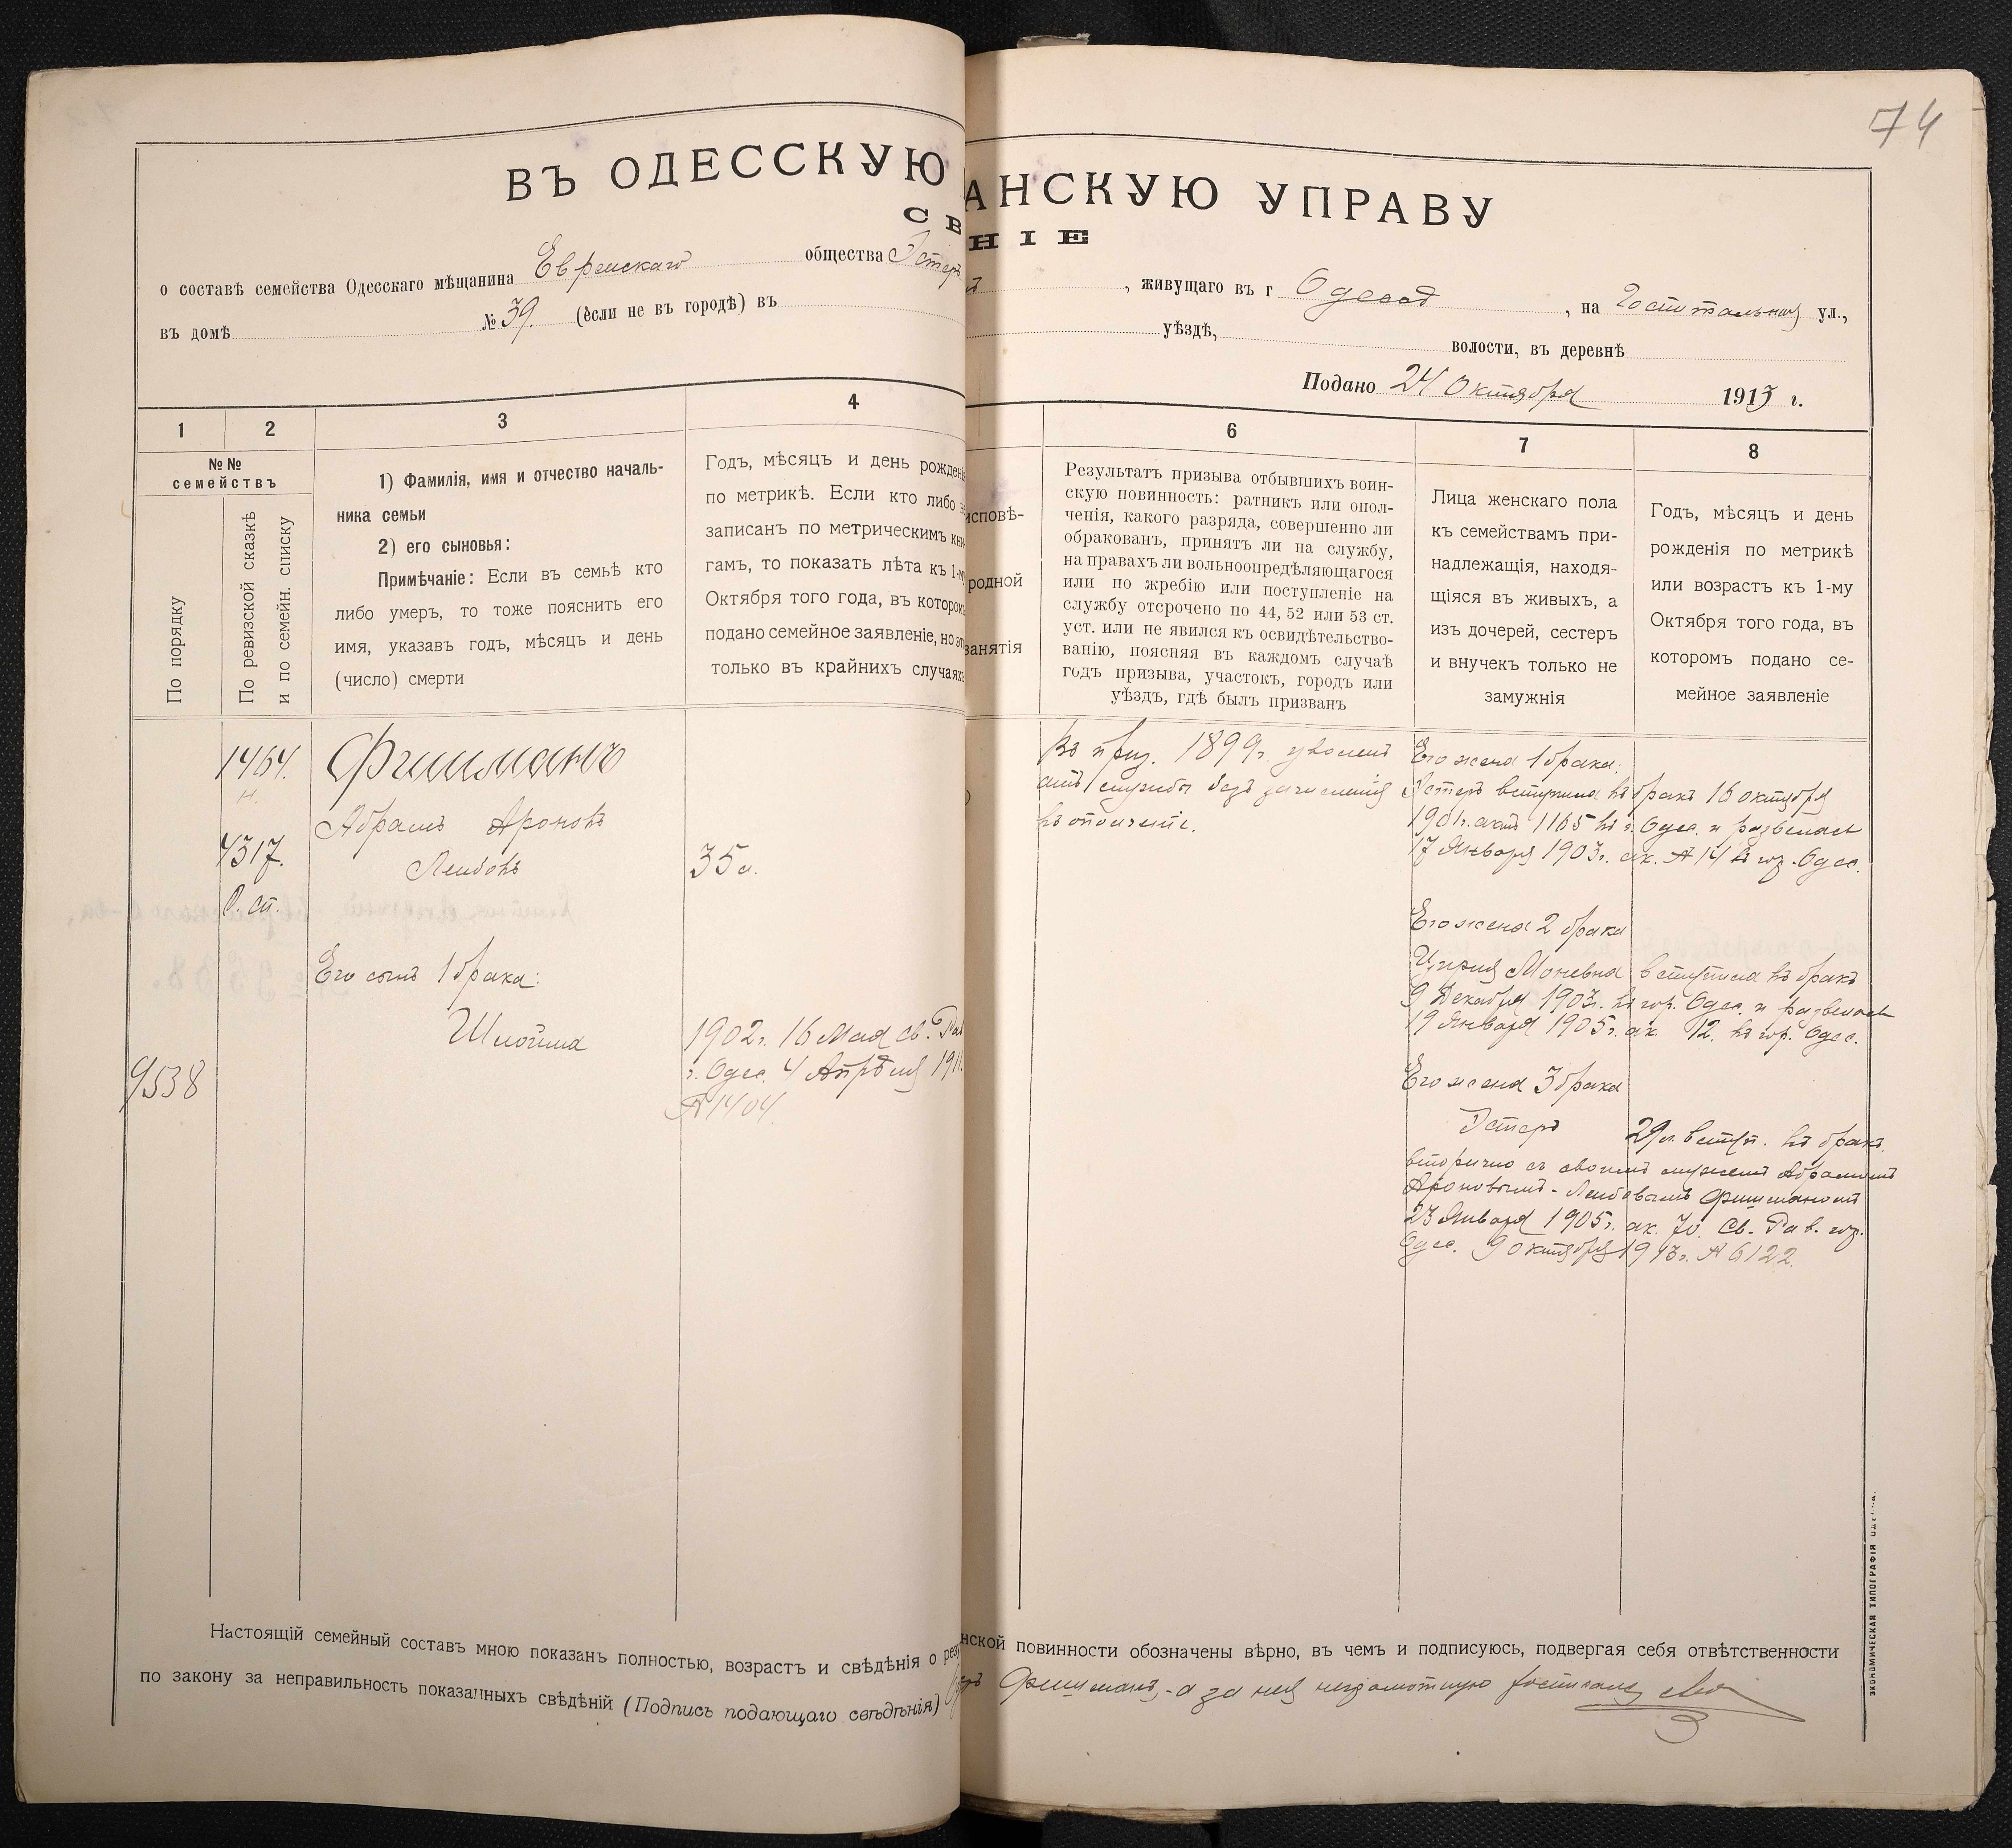 74
ВЪ ОДЕССКУЮ
АНСКУЮ УПРАВУ
СВ
НІЕ
о составѣ семейства Одесскаго мѣщанина Еврейскаго общества Эстеръ
, живущаго въ г Одессѣ , на Госпитальной ул.,
въ домѣ № 39. (если не въ городѣ) въ
уѣздѣ, волости, въ деревнѣ
Подано 24 Октября 1913 г.
1
2
3
4
6
7
8
№ №
семействъ
По порядку
По ревизской сказкѣ
и по семейн. списку
1) Фамилія, имя и отчество началь-
ника семьи
2) его сыновья:
Примѣчаніе: Если въ семьѣ кто
либо умеръ, то тоже пояснить его
имя, указавъ годъ, мѣсяцъ и день
(число) смерти
Годъ, мѣсяцъ и день рожденія
по метрикѣ. Если кто либо не
записанъ по метрическимъ кни-
гамъ, то показать лѣта къ 1-му
Октября того года, въ которомъ
подано семейное заявленіе, но это
только въ крайнихъ случаяхъ
исповѣ-
родной
занятія
Результатъ призыва отбывшихъ воин-
скую повинность: ратникъ или опол-
ченія, какого разряда, совершенно ли
обракованъ, принятъ ли на службу,
на правахъ ли вольноопредѣляющагося
или по жребію или поступленіе на
службу отсрочено по 44, 52 или 53 ст.
уст. или не явился къ освидѣтельство-
ванію, поясняя въ каждомъ случаѣ
годъ призыва, участокъ, городъ или
уѣздъ, гдѣ былъ призванъ
Лица женскаго пола
къ семействамъ при-
надлежащія, находя-
щіяся въ живыхъ, а
изъ дочерей, сестеръ
и внучекъ только не
замужнія
Годъ, мѣсяцъ и день
рожденія по метрикѣ
или возрастъ къ 1-му
Октября того года, въ
которомъ подано се-
мейное заявленіе
1464.
н.
4317.
О. сп.
9538
Фишманъ
Абрамъ Ароновъ
Лейбовъ
35 л.
Его сынъ 1 брака:
Шлойма
1902 г. 16 Мая св. Рав
г. Одес. 4 Апрѣля 1911.
№ 1404
Въ приз. 1899 г. уволенъ
отъ службы безъ зачисленія
въ ополченіе.
Его жена 1 брака:
Эстеръ вступила въ бракъ 16 октября
1901 г. актъ 1165 въ г. Одес. и развелась
17 Января 1903 г. ак. № 14 въ гор. Одес.
Его жена 2 брака
Ципря Моневна вступила въ бракъ
9 Декабря 1903 г. въ гор. Одес. и развелась
19 Января 1905 г. ак. 12. въ гор. Одес.
Его жена 3 брака
Эстеръ 29 л. вступ. въ бракъ
вторично съ своимъ мужемъ Абрамомъ
Ароновымъ-Лейбовымъ Фишманомъ
23 Января 1905 г. ак. 70. Св. Рав. гор.
Одес. 9 октября 1913 г. № 6122.
Настоящій семейный составъ мною показанъ полностью, возрастъ и свѣдѣнія о рез
нской повинности обозначены вѣрно, въ чемъ и подписуюсь, подвергая себя отвѣтственности
по закону за неправильность показанныхъ свѣдѣній (Подпись подающаго свѣдѣнія)
Фишманъ, а за нея неграмотную росписался
ЭКОНОМИЧЕСКАЯ ТИПОГРАФІЯ